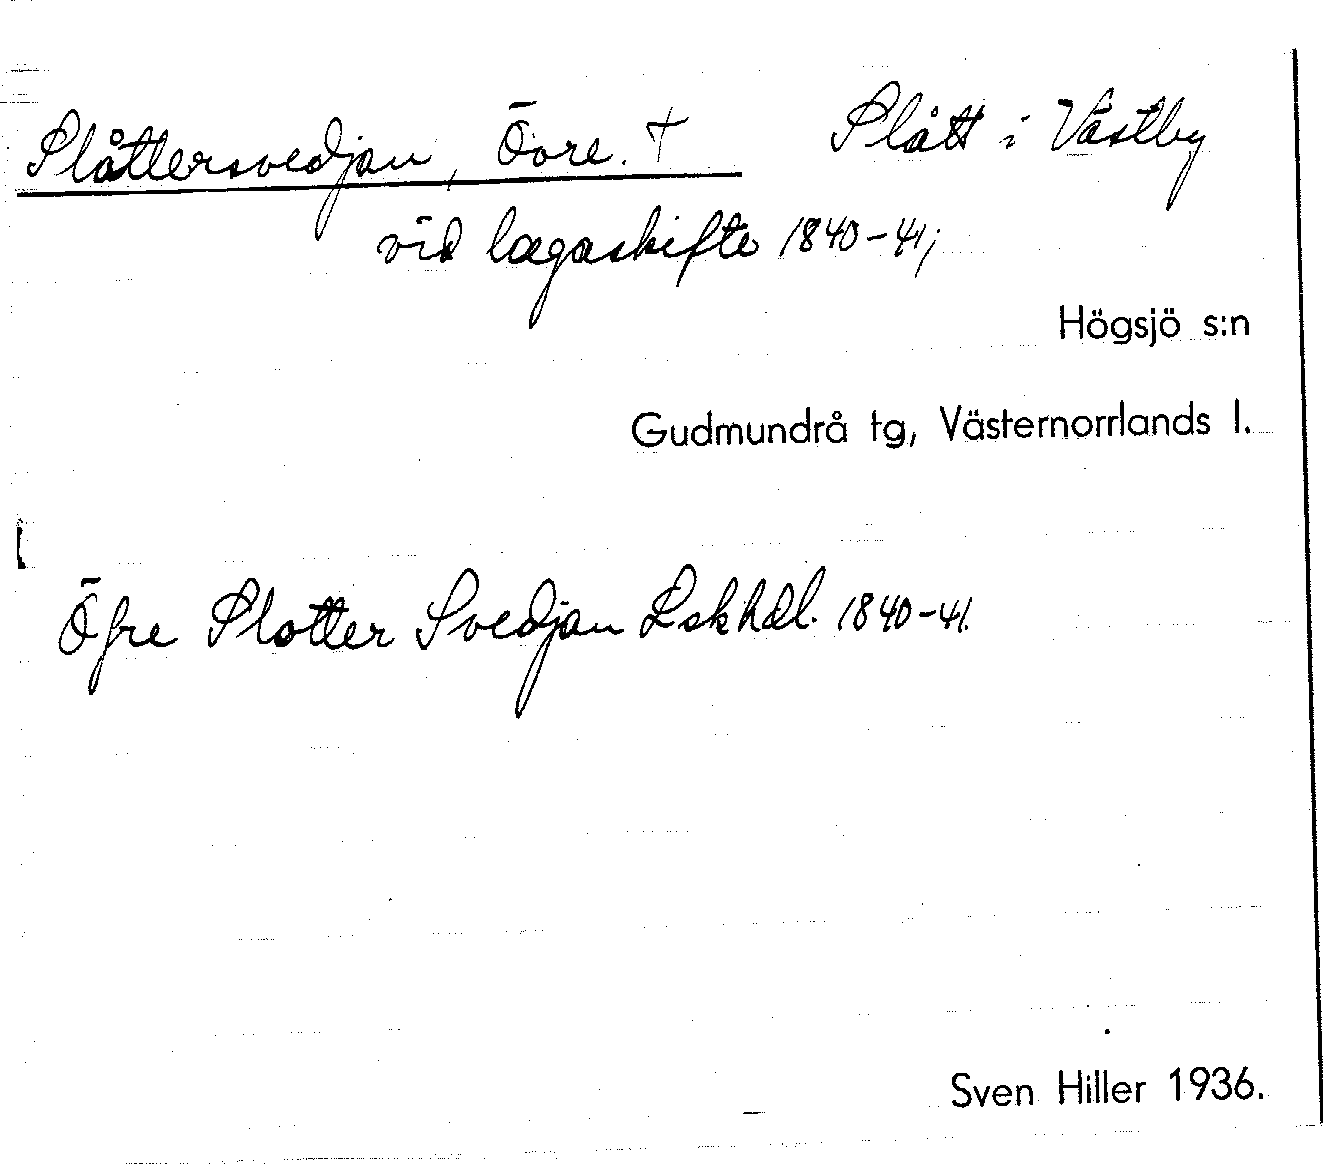 Slåttersvedjan, Övre. † Slått i Västby
vid lagaskifte 1840-41;
Högsjö s:n
Gudmundrå tg, Västernorrlands l.
Öfre Slotter Svedjan Lskhdl. 1840-41.
Sven Hiller 1936.